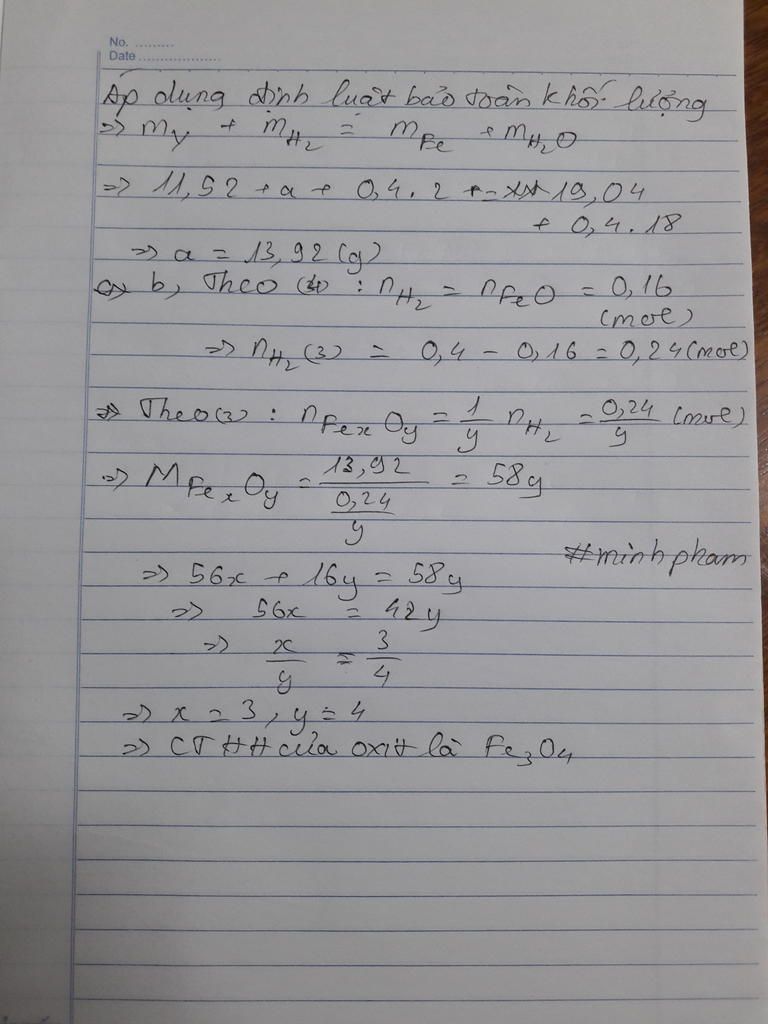 No. .........
Date ...................
Áp dụng định luật bảo toàn khối lượng
=> m_Y + m_H₂ = m_Fe + m_H₂O
=> 11,52 + a + 0,4.2 = 19,04
+ 0,4.18
=> a = 13,92 (g)
b, Theo (4) : n_H₂ = n_FeO = 0,16
(mol)
=> n_H₂(3) = 0,4 - 0,16 = 0,24 (mol)
=> Theo (3) : n_FeₓOᵧ = 1/y n_H₂ = 0,24/y (mol)
=> M_FeₓOᵧ = 13,92/(0,24/y) = 58y
#minhpham
=> 56x + 16y = 58y
=> 56x = 42y
=> x/y = 3/4
=> x = 3, y = 4
=> CTHH của oxit là Fe₃O₄